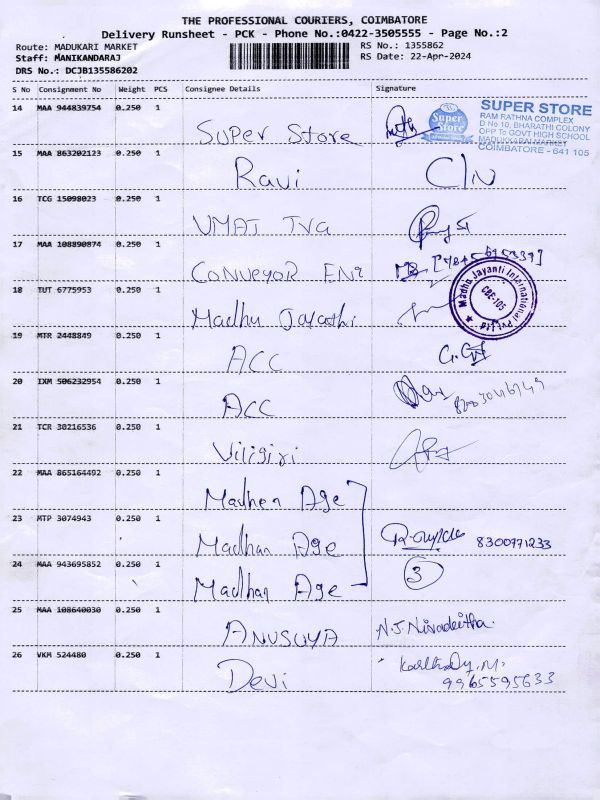 THE PROFESSIONAL COURIERS, COIMBATORE
Delivery Runsheet - PCK - Phone No.:0422-3505555 - Page No.:2
Route: MADUKARI MARKET RS No.: 1355862
Staff: MANIKANDARAJ RS Date: 22-Apr-2024
DRS No.: DCJB135586202
S No Consignment No Weight PCS Consignee Details Signature
14 MAA 944839754 0.250 1 Super Store
SUPER STORE
RAM RATHNA COMPLEX
D No 10, BHARATHI COLONY
OPP To GOVT HIGH SCHOOL
MADUKKARAI MARKET
COIMBATORE - 641 105
Super Store
15 MAA 863202123 0.250 1 Ravi C/N
16 TCG 15098023 0.250 1 UMAT TVG
17 MAA 108890874 0.250 1 CONVEYOR
18 TUT 6775953 0.250 1 Madhu
Madhu Jayanti International Pvt Ltd
CBE-105
19 MTR 2448849 0.250 1 ACC
20 IXM 506232954 0.250 1 ACC
21 TCR 30216536 0.250 1 Viligiri
22 MAA 865164492 0.250 1 Madhan Age
23 MTP 3074943 0.250 1 Madhan Age 8300771233
24 MAA 943695852 0.250 1 Madhan Age 3
25 MAA 108640030 0.250 1 ANUSUYA N.J.
26 VKM 524480 0.250 1 Devi
9965595633